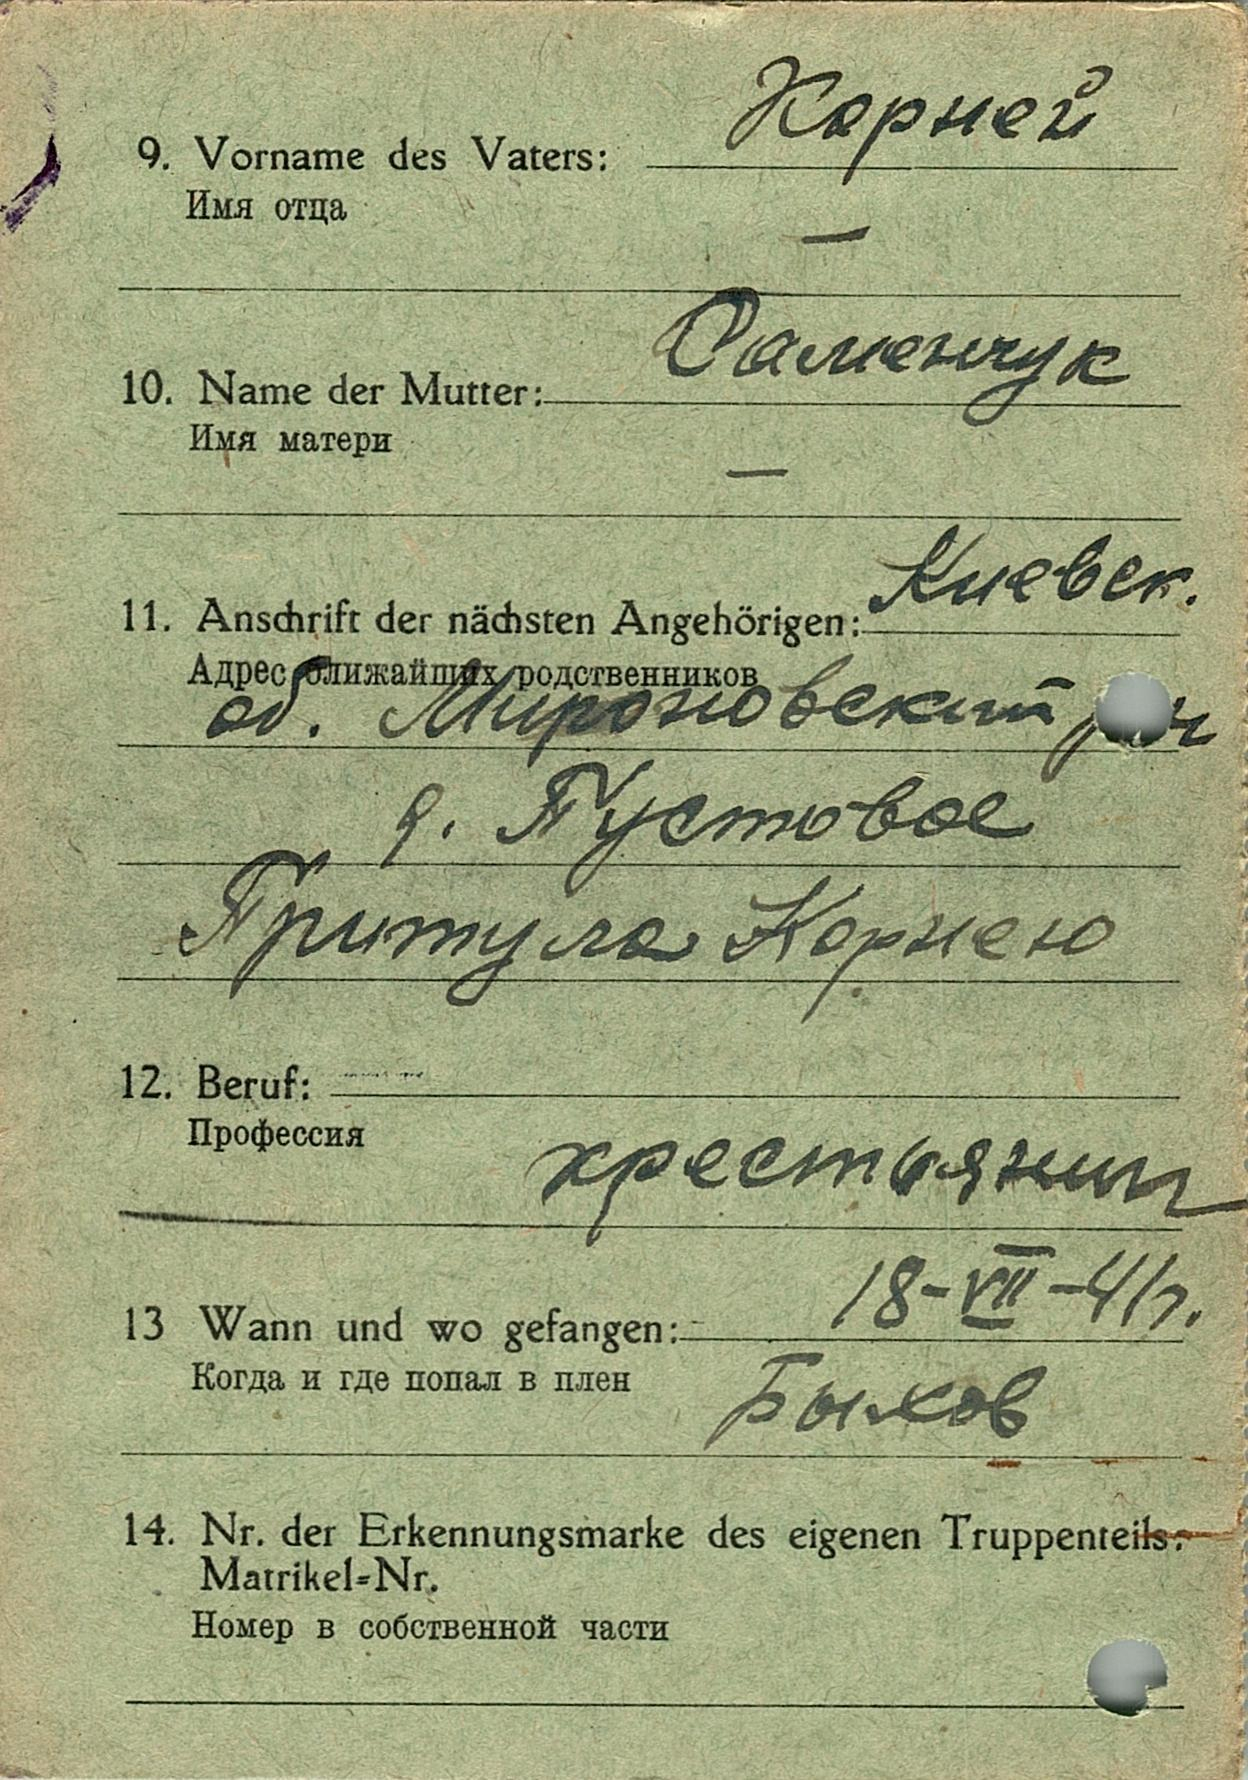 Корней
9. Vorname des Vaters:
Имя отца
—
Саменчук
10. Name der Mutter:
Имя матери
—
Киевск.
11. Anschrift der nächsten Angehörigen:
Адрес ближайших родственников
об. Мироновский р-н
д. Пустовое
Притула Корнею
12. Beruf:
Профессия
крестьянин
18-VII-41г.
13 Wann und wo gefangen:
Когда и где попал в плен
Быхов
14. Nr. der Erkennungsmarke des eigenen Truppenteils:
Matrikel-Nr.
Номер в собственной части